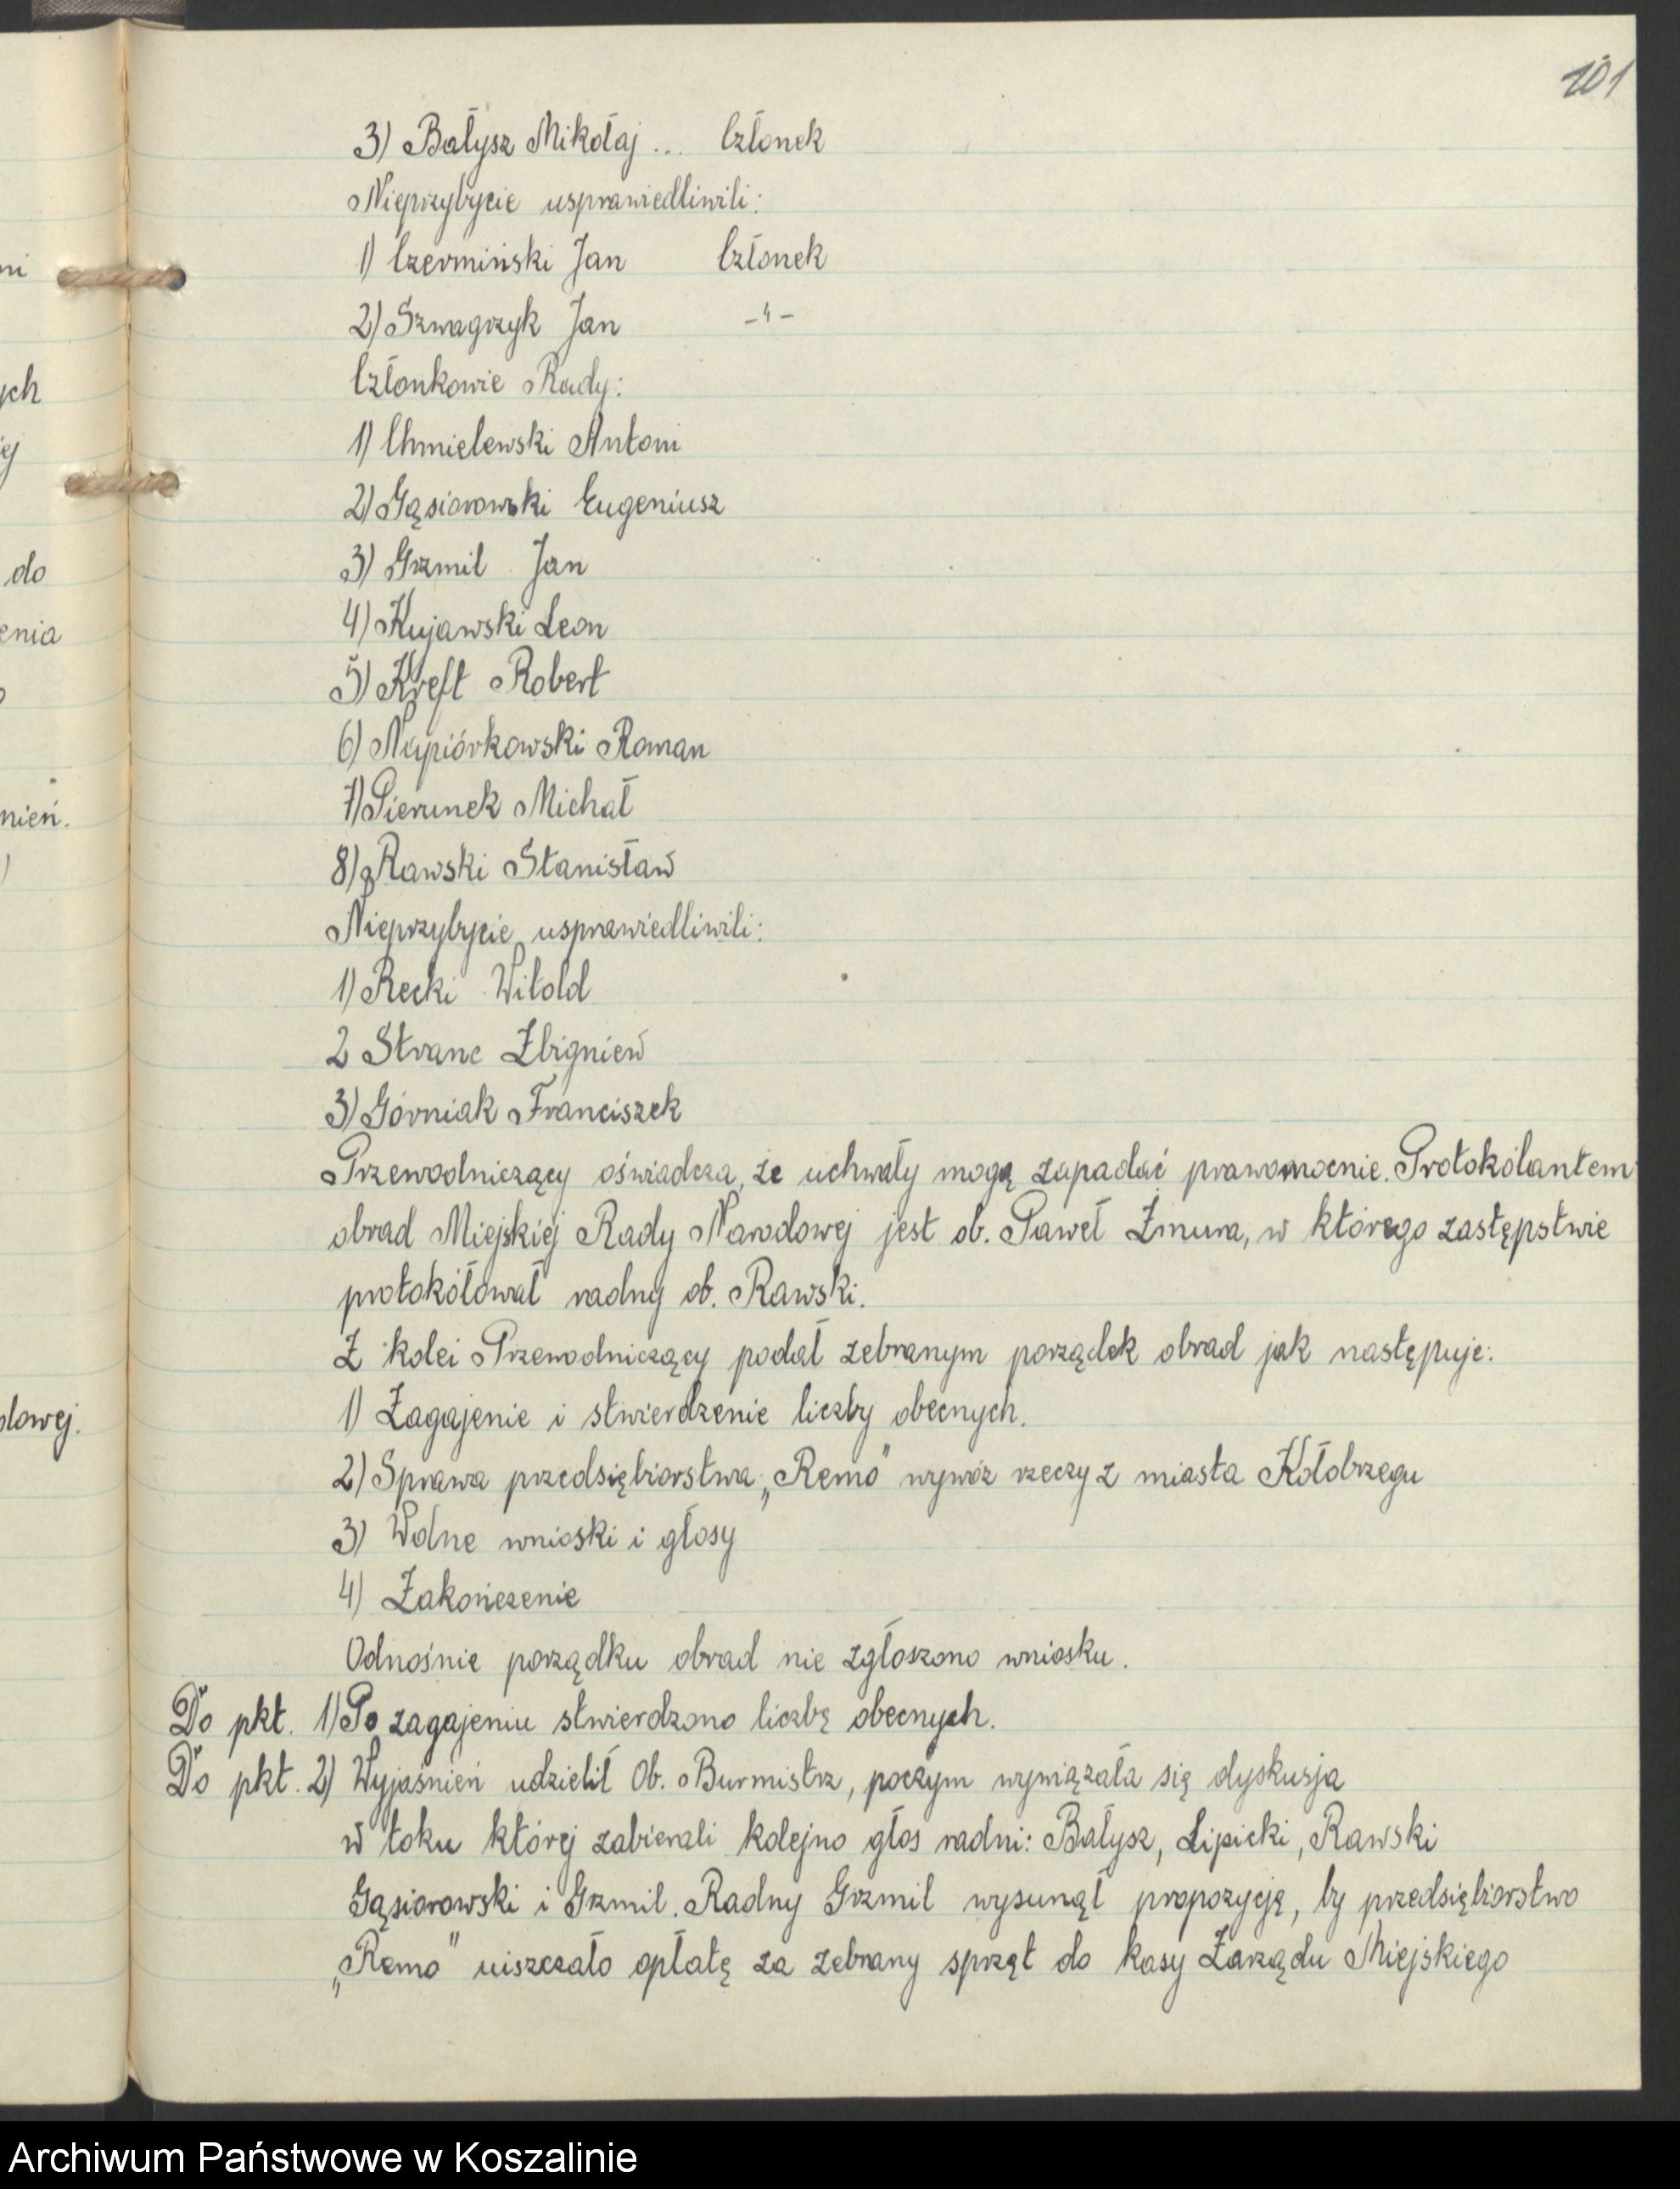 101
3) Bałysz Mikołaj ... Członek
Nieprzybycie usprawiedliwili:
1) Czermiński Jan Członek
2) Szwagrzyk Jan -"-
Członkowie Rady:
1) Chmielewski Antoni
2) Gąsiorowski Eugeniusz
3) Grzmil Jan
4) Kujawski Leon
5) Kreft Robert
6) Napiórkowski Roman
7) Pierunek Michał
8) Rawski Stanisław
Nieprzybycie usprawiedliwili:
1) Recki Witold
2 Stranc Zbigniew
3) Górniak Franciszek
Przewodniczący oświadcza, że uchwały mogą zapadać prawomocnie. Protokólantem
obrad Miejskiej Rady Narodowej jest ob. Paweł Żmura, w którego zastępstwie
protokółował radny ob. Rawski.
Z kolei Przewodniczący podał zebranym porządek obrad jak następuje:
1) Zagajenie i stwierdzenie liczby obecnych.
2) Sprawa przedsiębiorstwa „Remo" wywóz rzeczy z miasta Kołobrzegu
3) Wolne wnioski i głosy
4) Zakończenie
Odnośnie porządku obrad nie zgłoszono wniosku.
Do pkt. 1) Po zagajeniu stwierdzono liczbę obecnych.
Do pkt. 2) Wyjaśnień udzielił Ob. Burmistrz, poczym wywiązała się dyskusja
w toku której zabierali kolejno głos radni: Bałysz, Lipicki, Rawski
Gąsiorowski i Grzmil. Radny Grzmil wysunął propozycję, by przedsiębiorstwo
„Remo" uiszczało opłatę za zebrany sprzęt do kasy Zarządu Miejskiego
ni
ych
ej
do
enia
nień.
dowej.
Archiwum Państwowe w Koszalinie